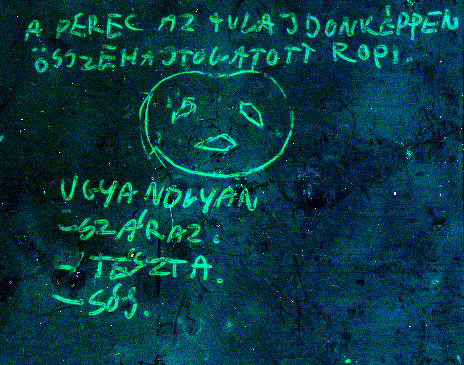 A PEREC AZ TULAJDONKÉPPEN
ÖSSZEHAJTOGATOTT ROPI.
UGYANOLYAN
-SZÁRAZ.
-TÉSZTA.
-SÓS.